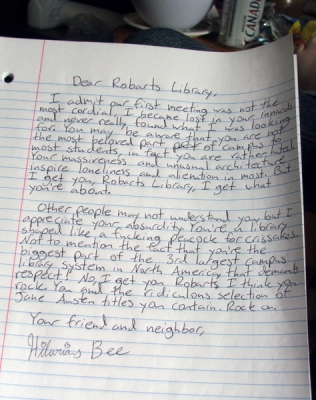 CANADA
Dear Robarts Library,
I admit our first meeting was not the
most cordial, I became lost in your innards
and never really found what I was looking
for. You may be aware that you are not
the most beloved part of campus to
most students, in fact you are rather hated.
Your massiveness and unusual architecture
inspire loneliness and alienation in most. But
I get you, Robarts Library, I get what
you're about.
Other people may not understand you, but I
appreciate your absurdity. You're a library
shaped like a fucking peacock for crissakes.
Not to mention the fact that you're the
biggest part of the 3rd largest campus
library system in North America, that demands
respect! No, I get you Robarts. I think you
rock. You and the ridiculous selection of
Jane Austen titles you contain. Rock on.
Your friend and neighbor,
Bee